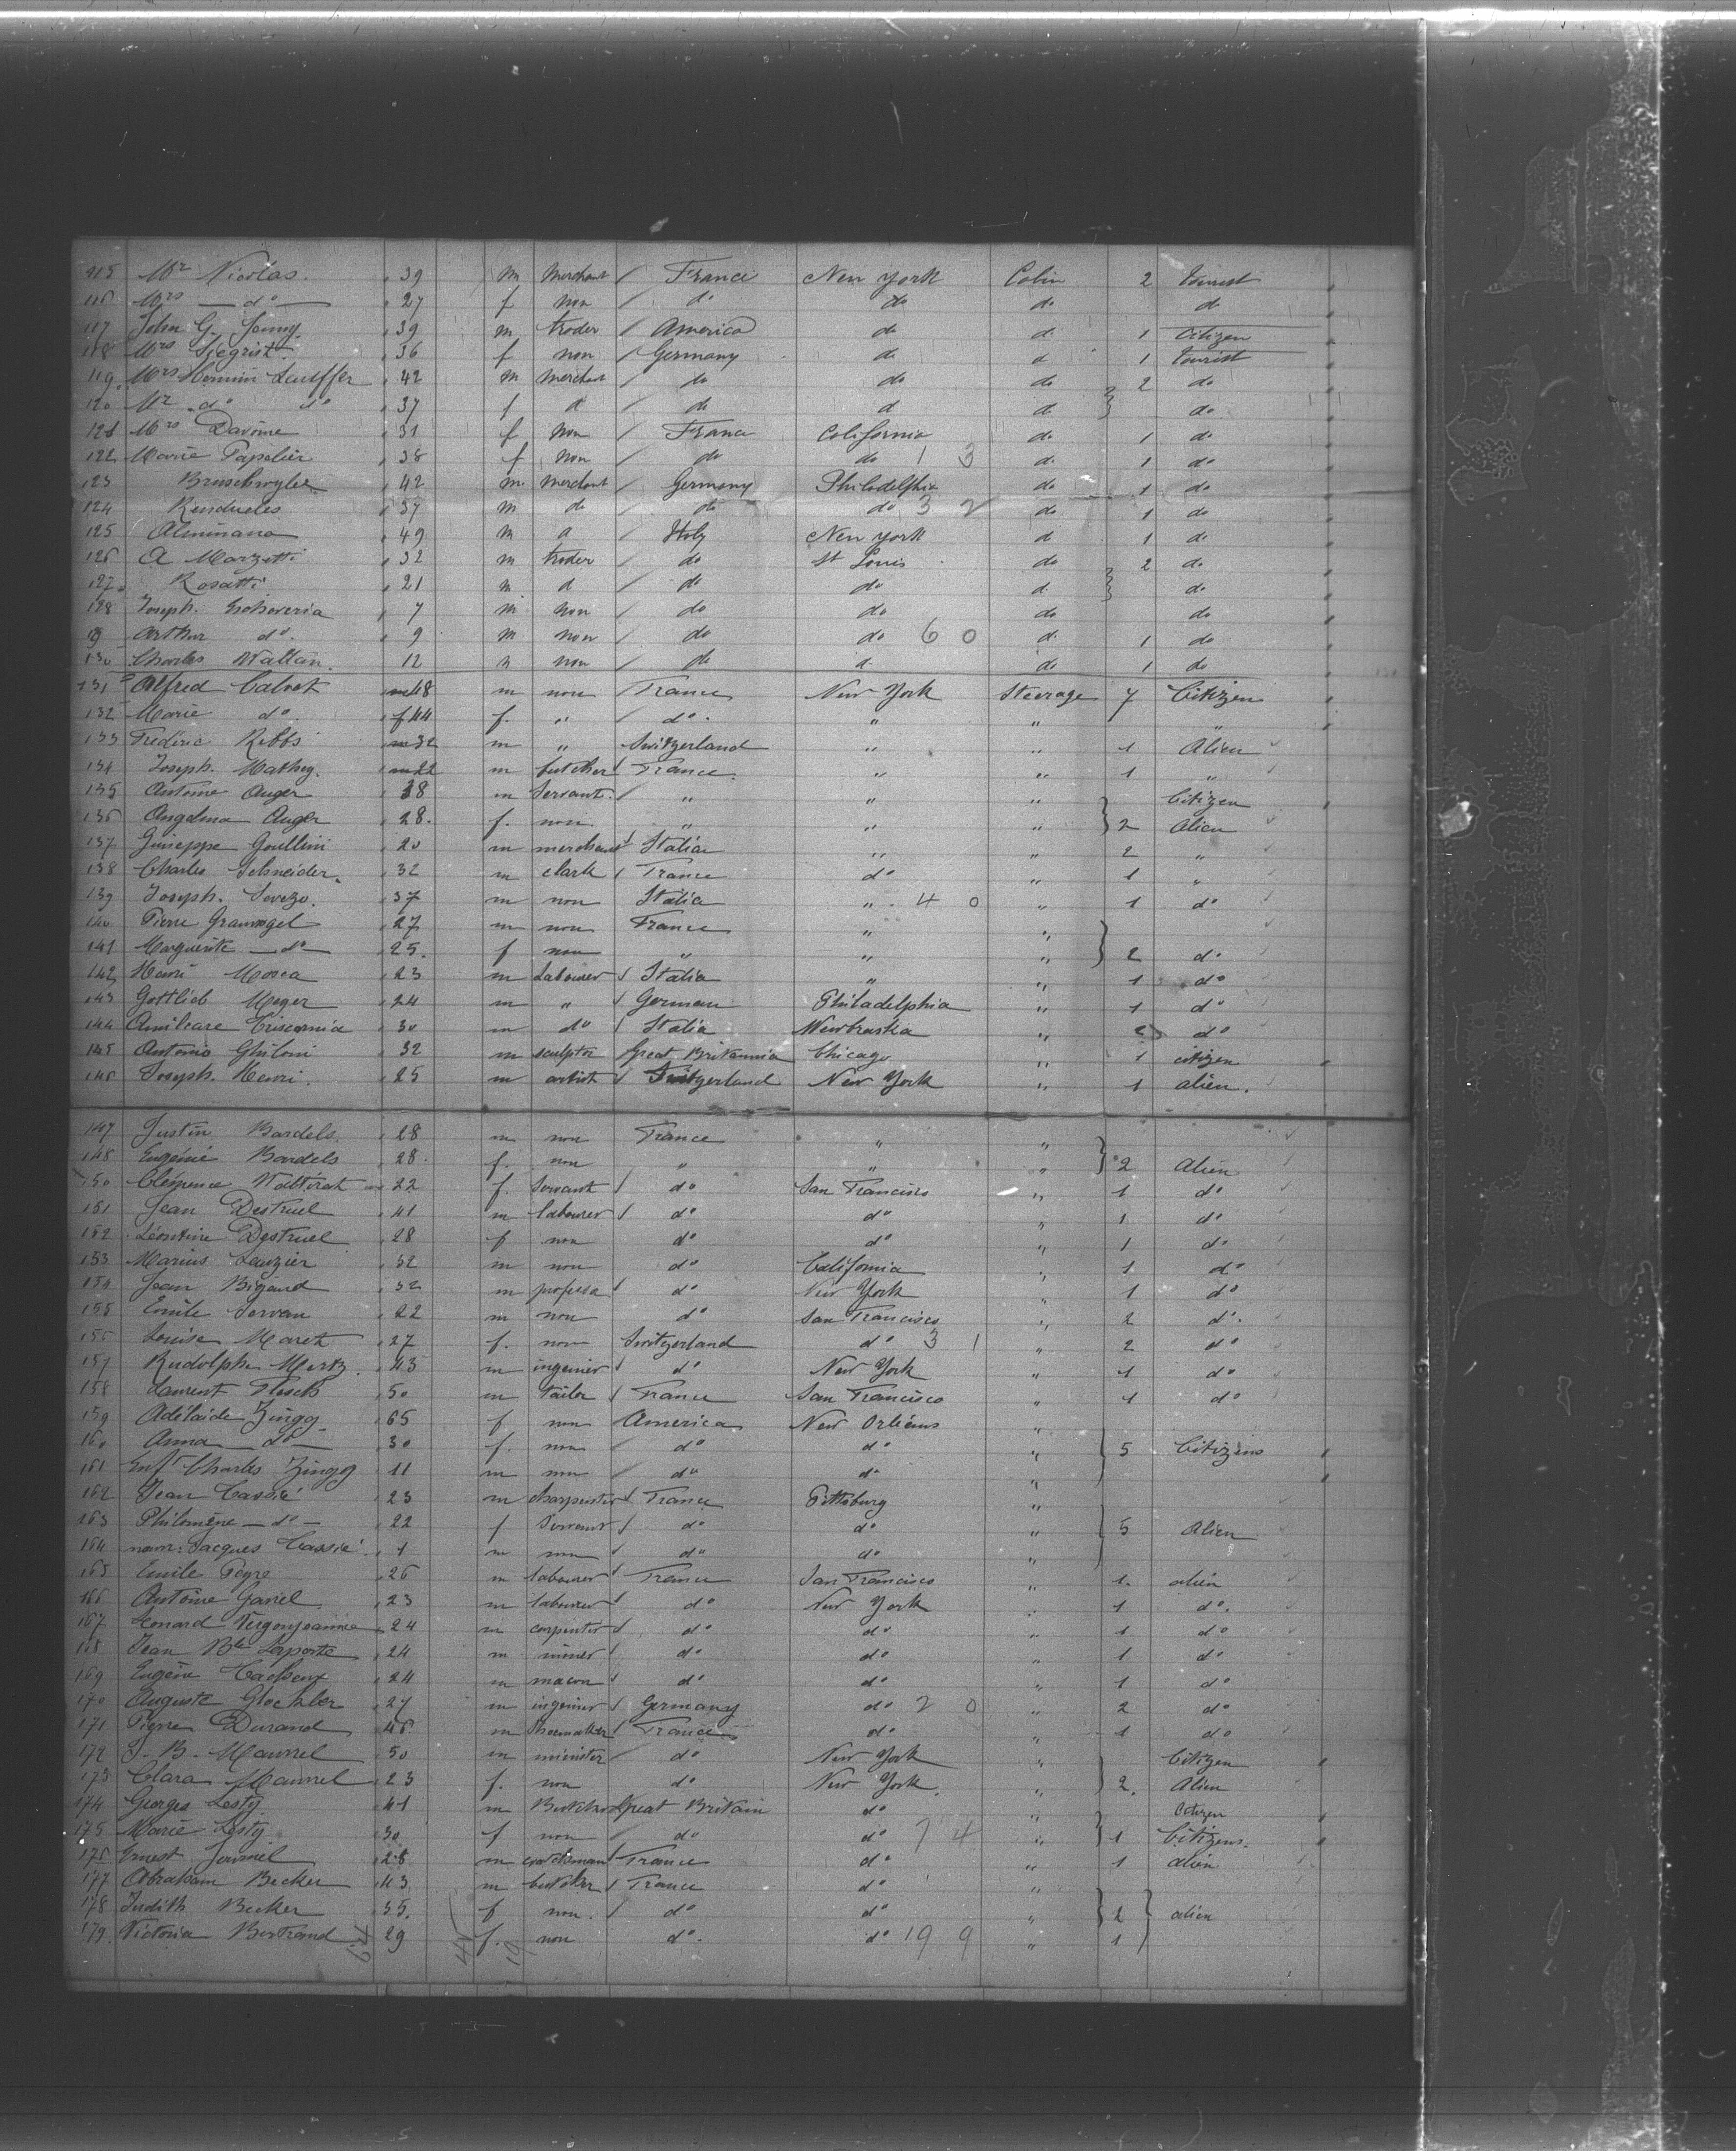 115 Mr Nicolas 39 m merchant France New York Cabin 2 tourist
116 Mrs — do — 27 f non do do do do
117 John G. Jenny 39 m trader America do do 1 Citizen
118 Mrs Siegrist 36 f non Germany do d 1 tourist
119 Mrs Hermin Lauffer 42 m merchant do do do 2 do
120 Mr do do 37 f d do d d do
121 Mrs Davoine 31 f non France California do 1 do
122 Marie Papelier 38 f non do do 1 3 do 1 do
123 42 m merchant Germany Philadelphia do 1 do
124 Rendueles 37 m do do do 3 2 do 1 do
125 Alminana 49 m d Italy New York d 1 do
126 A Marzetti 32 m trader do St Louis do 2 do
127 Rosatti 21 m d do do d do
128 Joseph. Echeveria 7 m non do do do do
9 Arthur do 9 m non do do 6 0 d. 1 do
130 Charles Wattan 12 m non do d do 1 do
131 Alfred Calvet m 48 m non France New York Steerage 7 Citizen
132 Marie do f 44 f. " do. " " "
133 Frédéric Ribbs m 32 m " Switzerland " " 1 Alien
134 Joseph. Mathey. m 22 m butcher France " " 1 "
135 Antoine Auger 38 m Servant " " " Citizen
136 Angelina Auger 28. f. non " " " 2 Alien
137 Guiseppe Goullini 20 m merchant Italia " " 2 "
138 Charles Schneider. 32 m clark France do " 1 "
139 Joseph. Sovezo. 37 m non Italia " 4 0 " 1 do
140 Pierre Grauvogel 27 m non France " "
141 Marguerite — do — 25. f non " " " 2 do
142 Henri Mosca 23 m Labourer Italia " " 1 do
143 Gottlieb Meyer 24 m " German Philadelphia " 1 do
144 Amilcare Eriscornia 30 m do Italia Newbraska " 2 do
145 Antonio Ghiloni 32 m sculptor Great Britannia Chicago " 1 citizen
146 Joseph. Henri. 25 m artist Switzerland New York " 1 alien.
147 Justin Bardels 28 m non France " "
148 Eugénie Bardels 28. f. non " " " 2 Alien
150 Clémence 22 f. Servant do San Francisco " 1 do
151 Jean Destruel 41 m labourer do do " 1 do
152 Léontine Destruel 28 f non do do " 1 do
153 Marius Lauzier 32 m non do California " 1 do
154 Jean Bigand 32 m professa do New York " 1 do
155 Emile Servan 22 m non do San Francisco " 2 do.
156 Louise Maret 27 f. non Switzerland do 3 1 " 2 do
157 Rudolphe Mertz. 43 m ingenier do New York " 1 do
158 Laurent Flesch 50 m tailor France San Francisco " 1 do
159 Adélaide Zingg 65 f non America New Orléans "
160 Anna — do — 30 f. non do do " 5 Citizens
161 Enft Charles Zingg 11 m non do do "
162 Jean Cassié 23 m charpenter France Pittsburg "
163 Philomène — do — 22 f Servant do do " 5 Alien
164 nom: Jacques Cassié 1 m non do do "
165 Emile Peyre 26 m labourer France San Francisco " 1. alien
166 Antoine Gariel 23 m labourer do New York " 1 do.
167 Leonard 24 m carpenter do do " 1 do
168 Jean Bte Laporte 24 m miner do do " 1 do
169 Eugène 24 m macon do do " 1 do
170 Auguste Glockler 27 m ingenier Germany do 2 0 " 2 do
171 Pierre Durand 46 m shoemaker France do " 1 do
172 J. B. Maurel 50 m minister do New York " Citizen
173 Clara Maurel 23 f. non do New York " 2. Alien
174 Georges Lesty 41 m Butcher Great Britain do " Citizen
175 Marie Lesty 30 f non do do 7 4 " 1 Citizens.
176 Ernest Journel 28 m France do " 1 alien
177 Abraham Becker 43 m butcher France do "
178 Judith Becker 35. f non. do do " 2 alien
179. Victoria Bertrand 29 f. non do. do 19 9 " 1